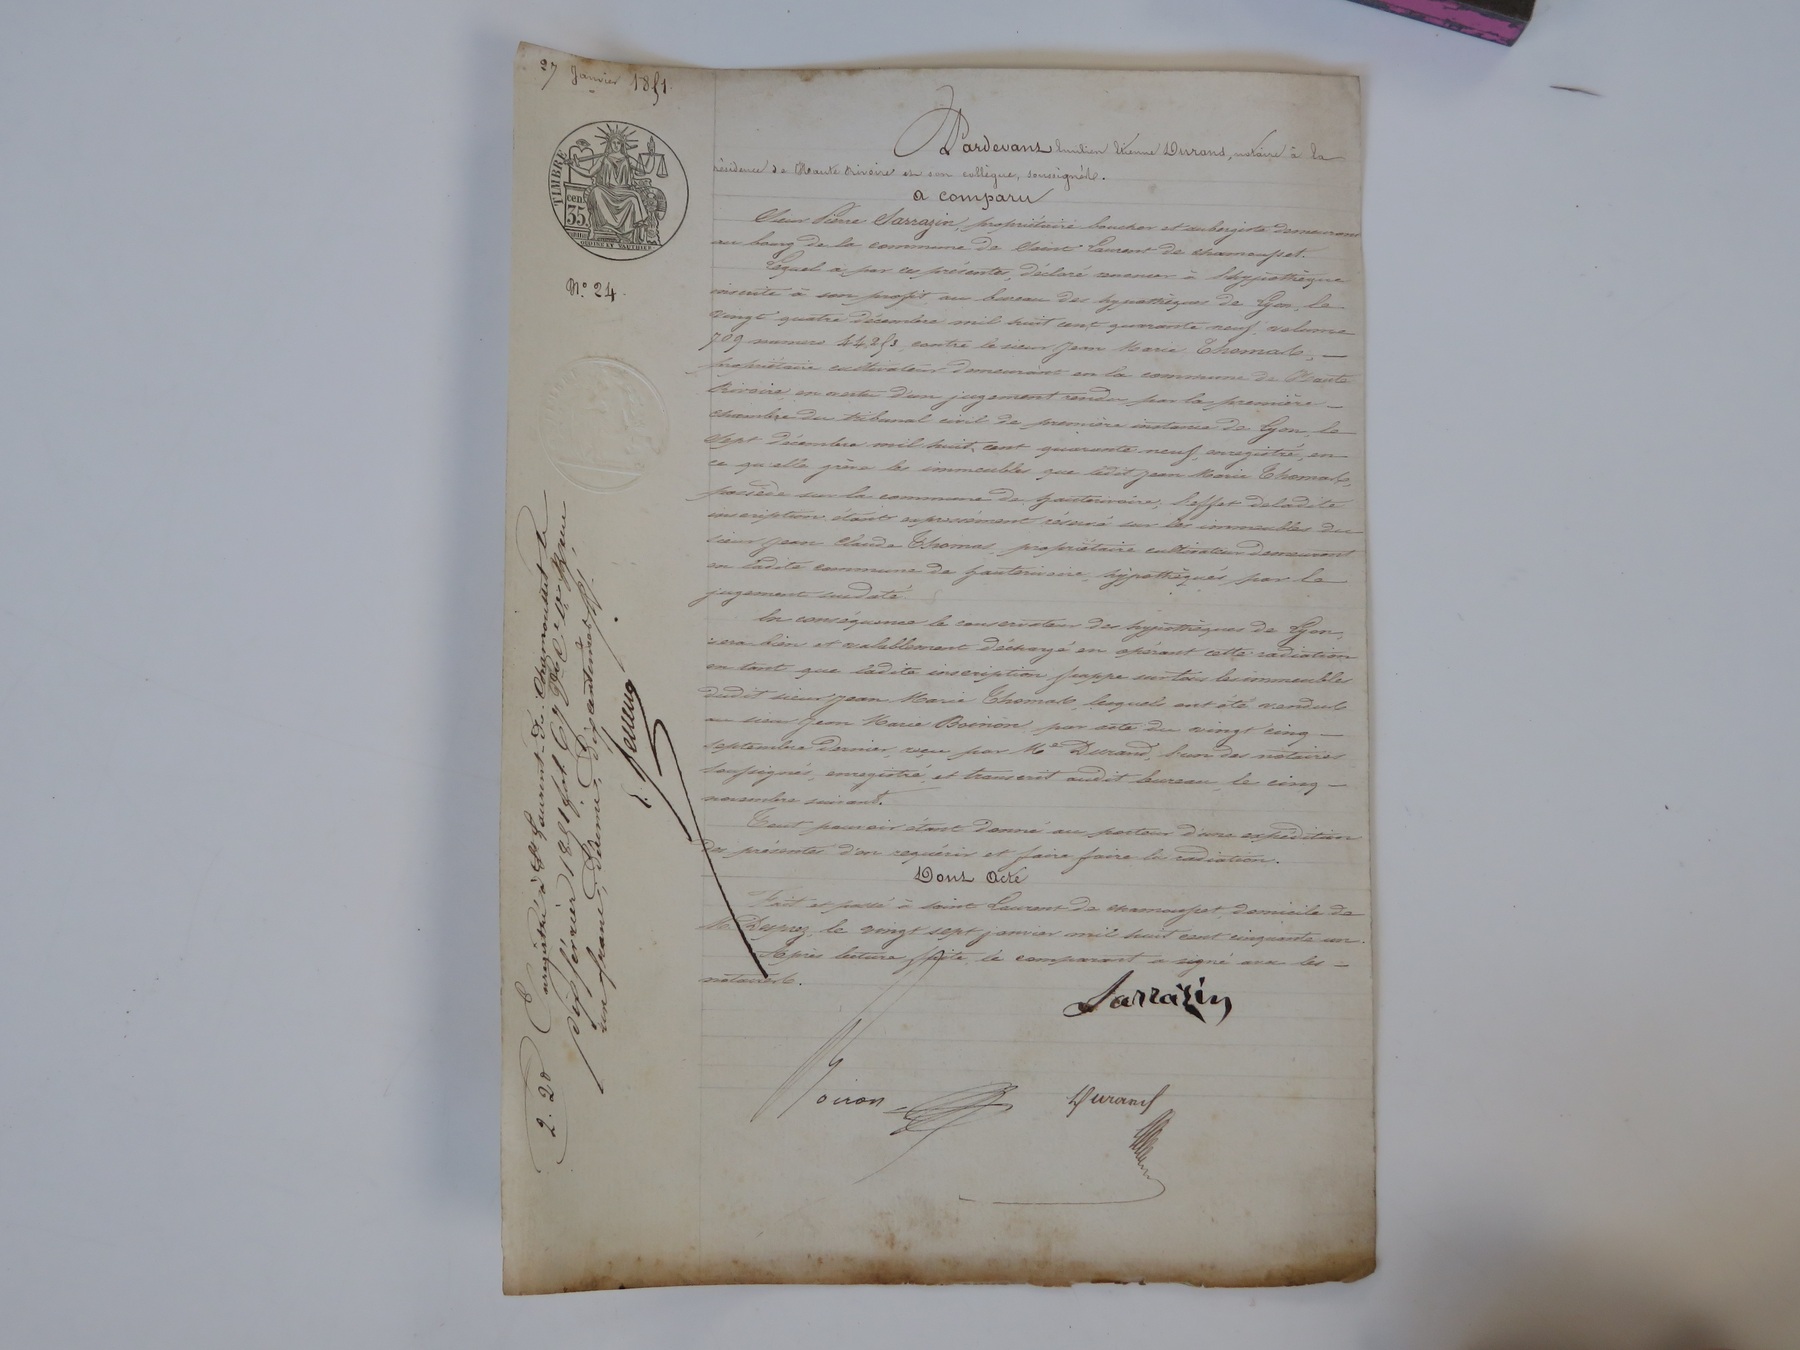 27 Janvier 1851.
TIMBRE
cen.
35.
N.° 24.
Pardevant Émilien Étienne Durand, notaire à la
résidence de Haute Rivoire et son collègue, soussignés.
a comparu
Sieur Pierre Sarrazin, propriétaire boucher et aubergiste demeurant
au bourg de la commune de Saint Laurent de chamousset.
Lequel a par ces présentes, déclaré renoncer à l'hypothèque
inscrite à son profit au bureau des hypothèques de Lyon, le
vingt quatre décembre mil huit cent quarante neuf, volume
709 numéro 44,253, contre le sieur Jean Marie Thomas, —
propriétaire cultivateur demeurant en la commune de Haute
Rivoire, en vertu d'un jugement rendu par la première —
chambre du tribunal civil de première instance de Lyon, le
sept décembre mil huit cent quarante neuf, enregistré, en
ce qu'elle grève les immeubles que ledit Jean Marie Thomas,
possède sur la commune de hauterivoire, l'effet de ladite
inscription étant expressément réservé sur les immeubles du
sieur Jean Claude Thomas, propriétaire cultivateur demeurant
en ladite commune de hauterivoire, hypothéqués par le
jugement susdaté.
En conséquence le conservateur des hypothèques de Lyon,
sera bien et valablement déchargé en opérant cette radiation
en tant que ladite inscription frappe sur tous les immeubles
dudit sieur Jean Marie Thomas, lesquels ont été vendus
au sieur Jean Marie Boinon, par acte du vingt cinq —
septembre dernier, reçu par Me Durand, l'un des notaires
soussignés, enregistré, et transcrit audit bureau, le cinq —
novembre suivant.
Tout pouvoir étant donné au porteur d'une expédition
des présentes d'en requérir et faire faire la radiation.
Dont Acte
Fait et passé à saint Laurent de chamousset, domicile de
M. Desprez, le vingt sept janvier mil huit cent cinquante un.
Après lecture faite, le comparant a signé avec les —
notaires.
Sarrazin
Durand
2. 20
Enregistré à St Laurent-de-Chamousset le
février 1851 fol. 69
un franc, Décime, Dix centimes